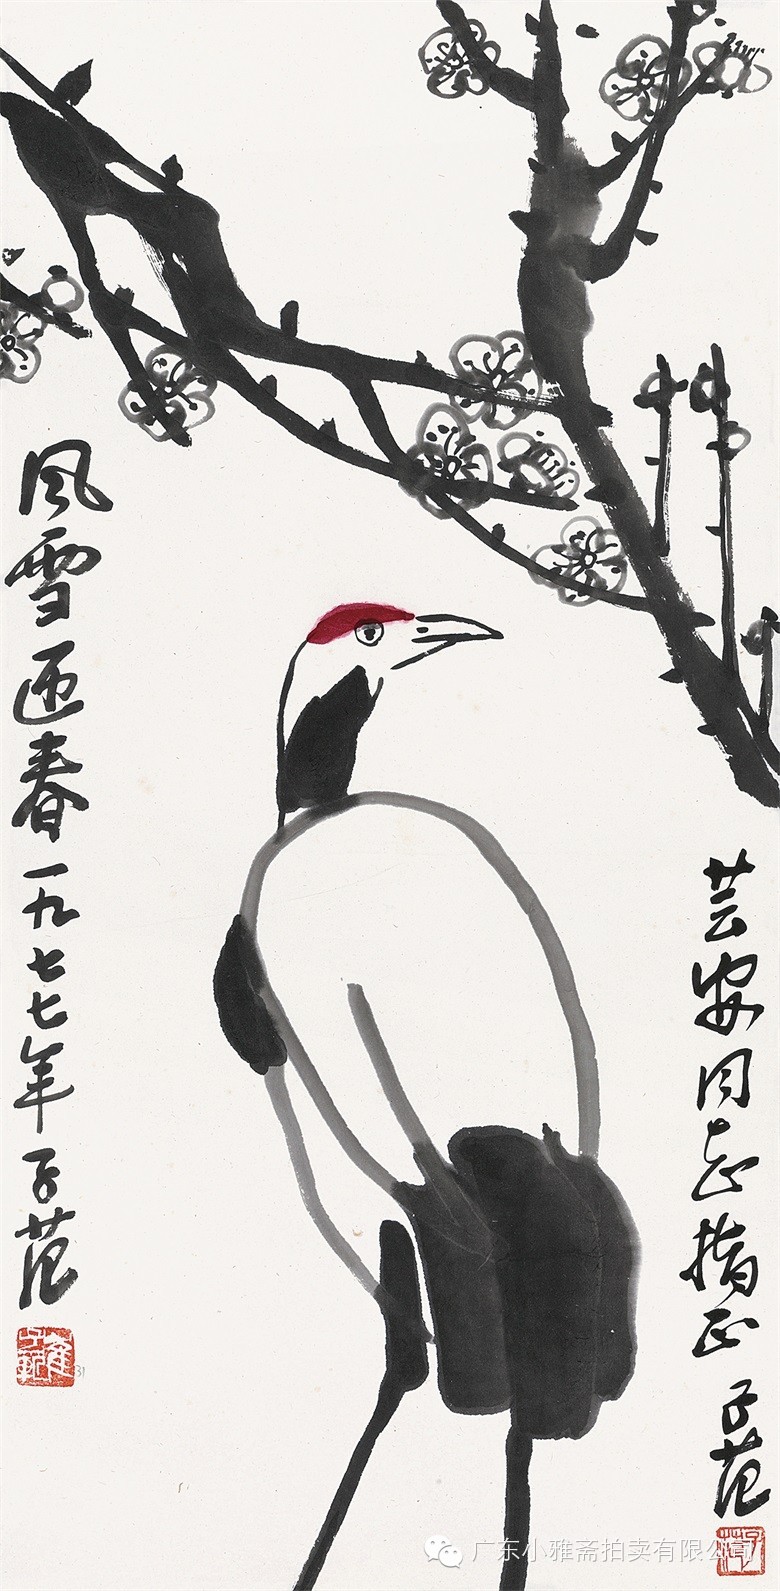 风雪迎春一九七七年子范
芸安同志指正子范
崔子範
31
广东小雅斋拍卖有限公司